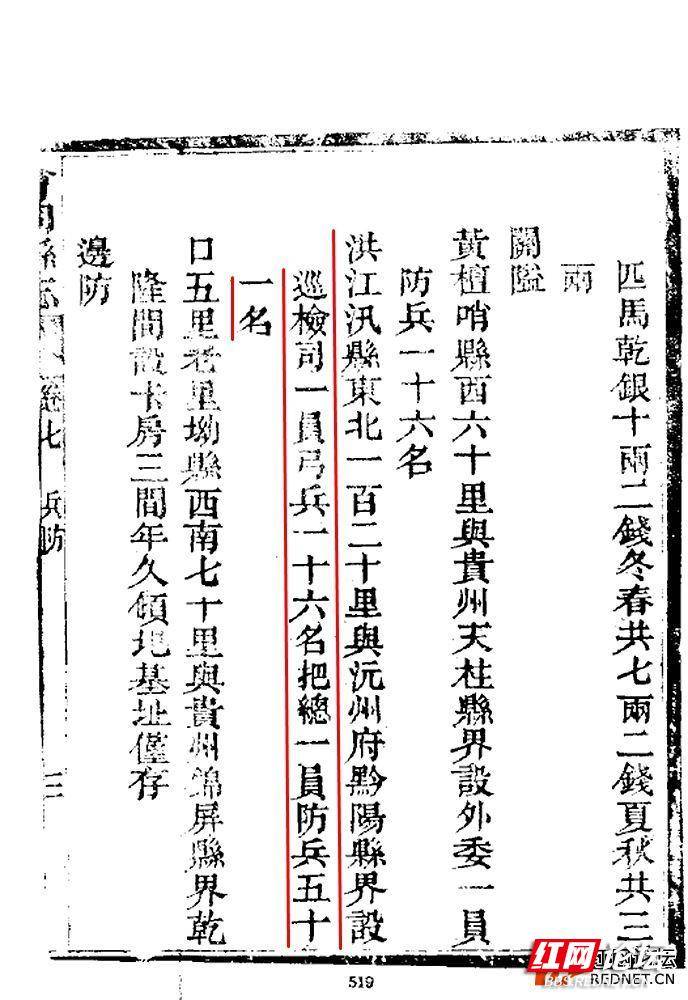 匹馬乾銀十兩二錢冬春共七兩二錢夏秋共三
兩
關隘
黃檀哨縣西六十里與貴州天柱縣界設外委一員
防兵一十六名
洪江汛縣東北一百二十里與沅州府黔陽縣界設
巡檢司一員弓兵一十六名把總一員防兵五十
一名
口五里老里坳縣西南七十里與貴州錦屏縣界乾
隆間設卡房三間年久傾圮基址僅存
邊防
會同縣志 卷七 兵防
519
红网论坛
REDNET.CN